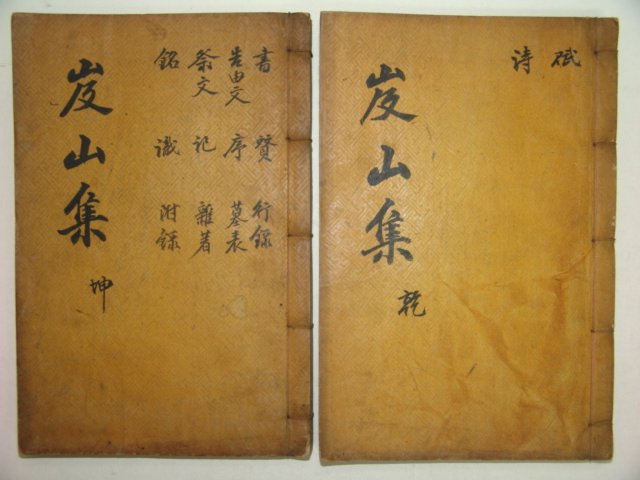 賦
詩
岌山集
乾
書 贊 行錄
告由文 序 墓表
祭文 記 雜著
銘 識 附錄
岌山集
坤